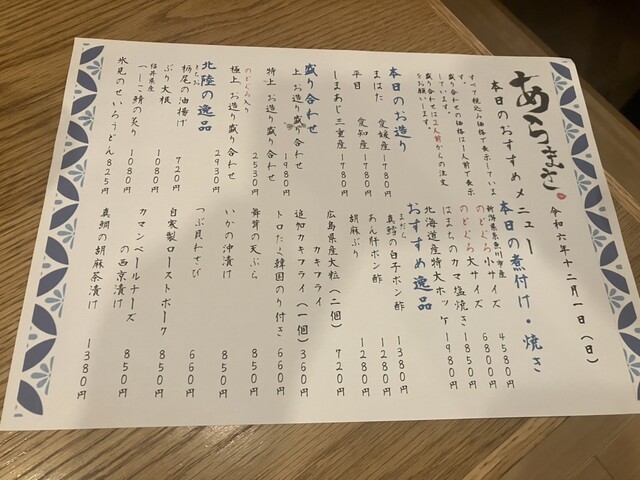 あらまさ
本日のおすすめメニュー
令和六年十二月一日（日）
すべて税込み価格で表示しています。
盛り合わせの価格は一人前で表示しています。
盛り合わせは2人前からの注文をお願いします。
本日のお造り
まはた 愛媛産 1780円
平目 愛知産 1780円
しまあじ 三重産 1780円
盛り合わせ
上 お造り盛り合わせ 1980円
特上 お造り盛り合わせ 2530円
のどぐろ入り
極上 お造り盛り合わせ 2930円
北陸の逸品
とちお
栃尾の油揚げ 720円
ぶり大根 1080円
福井県産
へしこ鯖の炙り 1080円
氷見のせいろうどん 825円
本日の煮付け・焼き
新潟県糸魚川市産
のどぐろ 小サイズ 4580円
のどぐろ 大サイズ 6800円
はまちのカマ塩焼き 1850円
北海道産特大ホッケ 1980円
おすすめ逸品
まだら
真鱈の白子ポン酢 1380円
あん肝ポン酢 1280円
胡麻ぶり 1280円
広島県産大粒（二個）
カキフライ 720円
追加カキフライ（一個） 360円
トロたく韓国のり付き 660円
舞茸の天ぷら 850円
いかの沖漬け 850円
つぶ貝わさび 660円
自家製ローストポーク 850円
カマンベールチーズ
の西京漬け 850円
真鯛の胡麻茶漬け 1380円